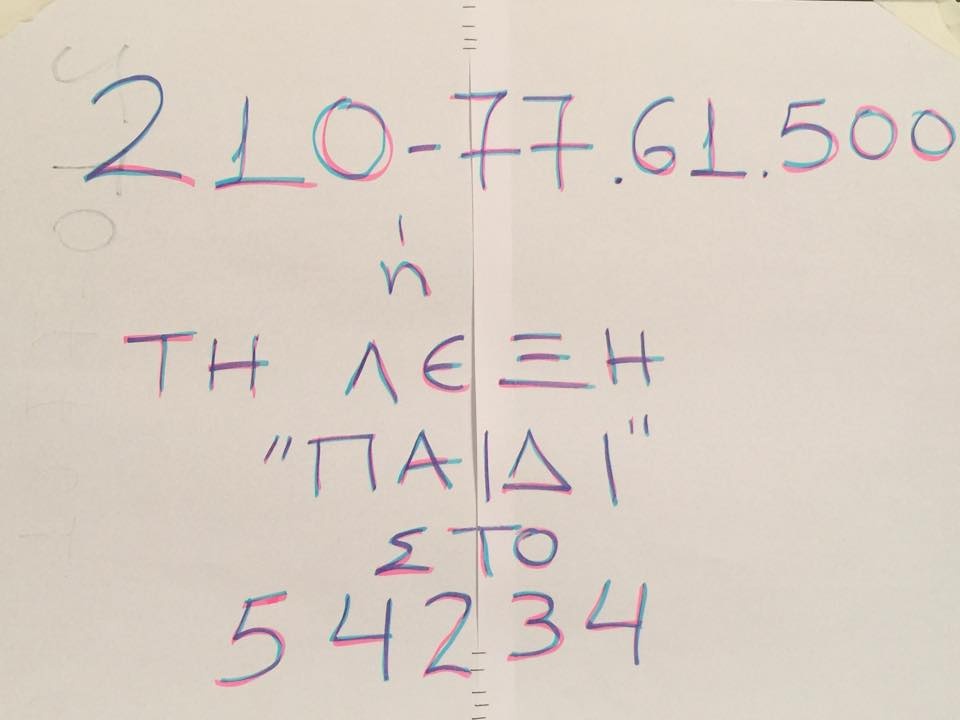 210-77.61.500
ή
ΤΗ ΛΕΞΗ
"ΠΑΙΔΙ"
ΣΤΟ
54234